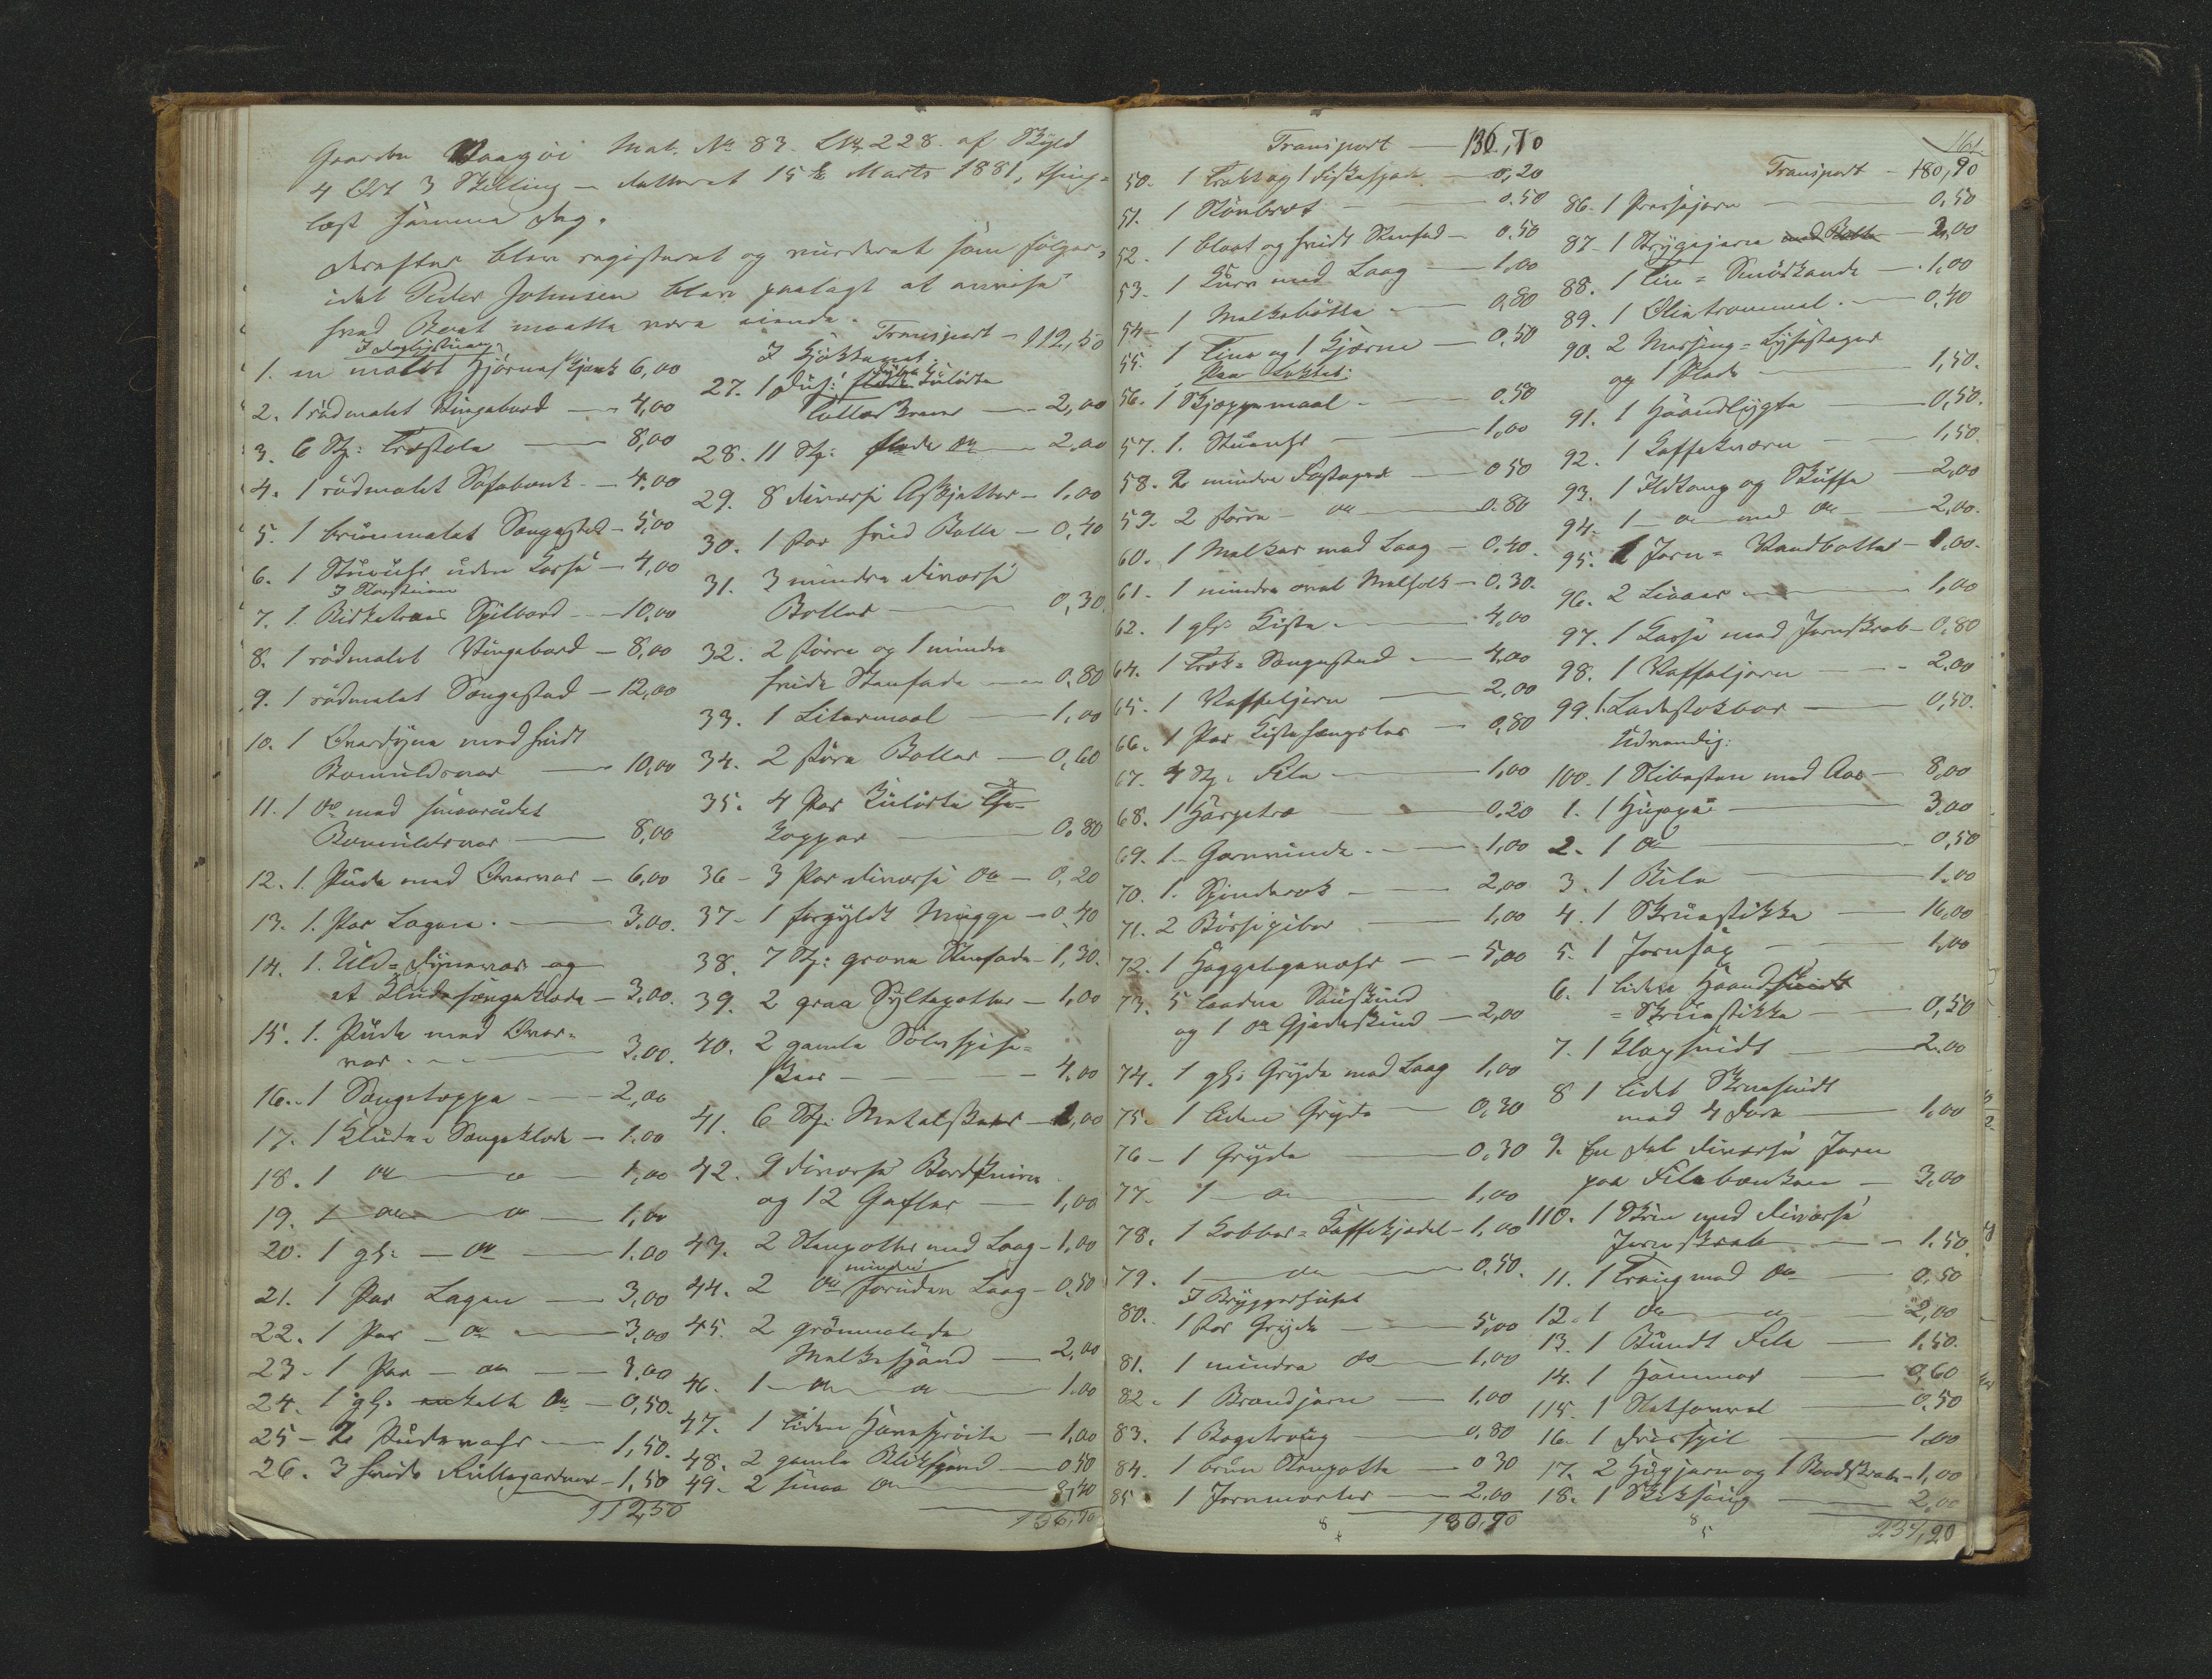 Gaarden Vaagøi Mat. No 83. LNo 228. af Skyld
4 Ort 3 Skilling – dateret 15de Marts 1881, thing=
læst samme Dag.
Derefter blev registeret og vurderet som følger,
idet Peder Johnsen blev paalagt at anvise
hvad Boet maatte være eiende.
I Dagligstuen
1. en malet Hjørneskjænk 6,00
2. 1 rødmalet Vingebord — 4,00
3. 6 Stk: Træstole — 8,00
4. 1 rødmalet Sofabænk — 4,00
5. 1 brunmalet Sengested — 5,00
6. 1 Stueuhr uden Kasse — 4,00
I Storstuen
7. 1. Birketræes Spilbord — 10,00
8. 1 rødmalet Vingebord — 8,00
9. 1 rødmalet Sengested — 12,00
10. 1 Overdyne med hvidt
Bomuldsvar — 10,00
11. 1 do med smaarudet
Bomuldsvar — 8,00
12. 1. Pude med Overvar — 6,00
13. 1. Par Lagen. — 3,00.
14. 1. Uld=Dynevar og
et Kludesengeklæde — 3,00.
15. 1. Pude med Over=
var — 3,00.
16. 1 Sengeteppe — 2,00
17. 1 Klude=Sengeklæde — 1.00
18. 1 do — do — 1,00
19. 1 do — do — 1,00
20. 1 gl: — do — 1.00
21. 1 Par Lagen — 3,00
22. 1 Par — do — 3,00
23. 1 Par — do — 3,00
24. 1 gl: enkelt do — 0,50.
25 – 2 Pudevahr — 1,50.
26. 3 hvide Rullegardiner — 1,50
112,50
Transport — 112,50
I Kjøkkenet.
27. 1 Dus: dybe kulørte
Tallerkener — 2,00
28. 11 Stk: flade do — 2,00
29. 8 diverse Asjetter — 1,00
30. 1 stor hvid Bolle — 0,40
31. 3 mindre diverse
Boller — 0,30.
32. 2 større og 1 mindre
hvide Stenfade — 0,80
33. 1 Litermaal — 1,00
34. 2 større Boller — 0,60
35. 4 Par kulørte The=
Kopper — 0,80
36 – 3 Par diverse do — 0,20
37 – 1 forgyldt Mugge — 0,40
38. 7 Stk: grove Stenfade — 1,30.
39. 2 graa Syltepotter — 1,00
40. 2 gamle Sølvspise=
skeer — 4,00
41. 6 Stk: Metalskeer — 1,00
42. 9 diverse Bordknive
og 12 Gafler — 1,00
43. 2 Stenpotter med Laag — 1,00
44. 2 do mindre foruden Laag — 0,50
45. 2 grønmalede
Melkespand — 2,00
46. 1 do — do — 1.00
47. 1 liden Havesprøite — 1,00
48. 2 gamle Blikspand — 0,50
49. 2 smaa do — 0,40
136,70
Transport — 136,70
50. 1 Trakt og 1 Fiskespade — 0,20
51. 1 — 0.50
52. 1 blaat og hvidt Stenfad — 0.50
53. 1 Kurv med Laag — 1,00
54 – 1 Melkebøtte — 0,80
55. 1 Tine og 1 Kjærne — 0,50
Paa Loftet:
56. 1 Skjeppemaal — 0.50
57. 1. Stueuhr — 1,00
58. 2 mindre Fustager — 0 50
59. 2 større – do — 0.80
60. 1 Melkar med Laag — 0,40.
61. 1 mindre oval Melholk — 0,30.
62. 1 gl: Kiste — 4,00
64. 1 Træk=Sengested — 4,00
65. 1 Vaffeljern — 2,00
66. 1 Par Kistehængsler — 0,80
67. 4 Stk: File — 1,00
68. 1 Harpetræ — 0,20
69. 1 – Garnvinde — 1,00
70. 1. Spinderok — 2,00
71. 2 Børsepiber — 1,00
72. 1 Haggelgevæhr — 5,00
73. 5 lodne Saueskind
og 1 do Gjedeskind — 2,00
74. 1 gl: Gryde med Laag 1,00
75. 1 liden Gryde — 0,30
76 – 1 Gryde — 0,30
77. 1 — do — 1,00
78. 1 Kobber=Kaffekjedel — 1,00
79. 1 — do — 0,50.
I Bryggerhuset
80. 1 stor Gryde — 5,00
81. 1 mindre do — 1,00
82. 1 Brændjern — 1,00
83. 1 Bagetroug — 0,80
84. 1 brun Stenpotte — 0 30
85. 1 Jernmorter — 2.00
180,90
Transport — 180,90
86. 1 Pressejern — 0,50
87 – 1 Strygejern med Bolte — 2,00
88. 1 Tin=Smørkande — 1,00
89. 1 Olietrommel. — 0,40
90. 2 Messing=Lysestager
og 1 Plade — 1,50.
91. 1 Haandlygte — 0,50.
92. 1 Kaffekværn — 1,50
93. 1 Ildtang og Skuffe — 2,00
94. 1 – do med do — 2,00.
95. 1 Jern=Vandbøtter — 1,00.
96. 2 Liaaer — 1,00
97. 1 Kasse med Jernskrab — 0,80
98. 1 Vaffeljern — 2.00
99. 1. Ladestokbor — 0,50.
Udvendig:
100. 1 Slibesten med Aas — 8,00
1. 1 Huxøxe — 3,00
2. 1 do — 0,50
3. 1 Bile — 1.00
4. 1 Skruestikke — 16,00
5. 1 Jernsax — 1,00
6. 1 liden Haand
=Skruestikke — 0,50
7. 1 Klaphvidt — 2.00
8 1 lidet Skruesnidt
med 4 — 1,00
9. En del diverse Jern
paa Filebænken — 3,00
110. 1 Skrin med diverse
Jernskrab — 1.50.
11. 1 Traug med do — 0,50
12. 1 do — do — 2,00
13. 1 Bundt File — 1,50.
14. 1 Hammer — 0,60
115. 1 — 0,50
16. 1 — 1,00
17. 2 Hugjern og 1 — 1,00
18. 1 — 2,00
237,20